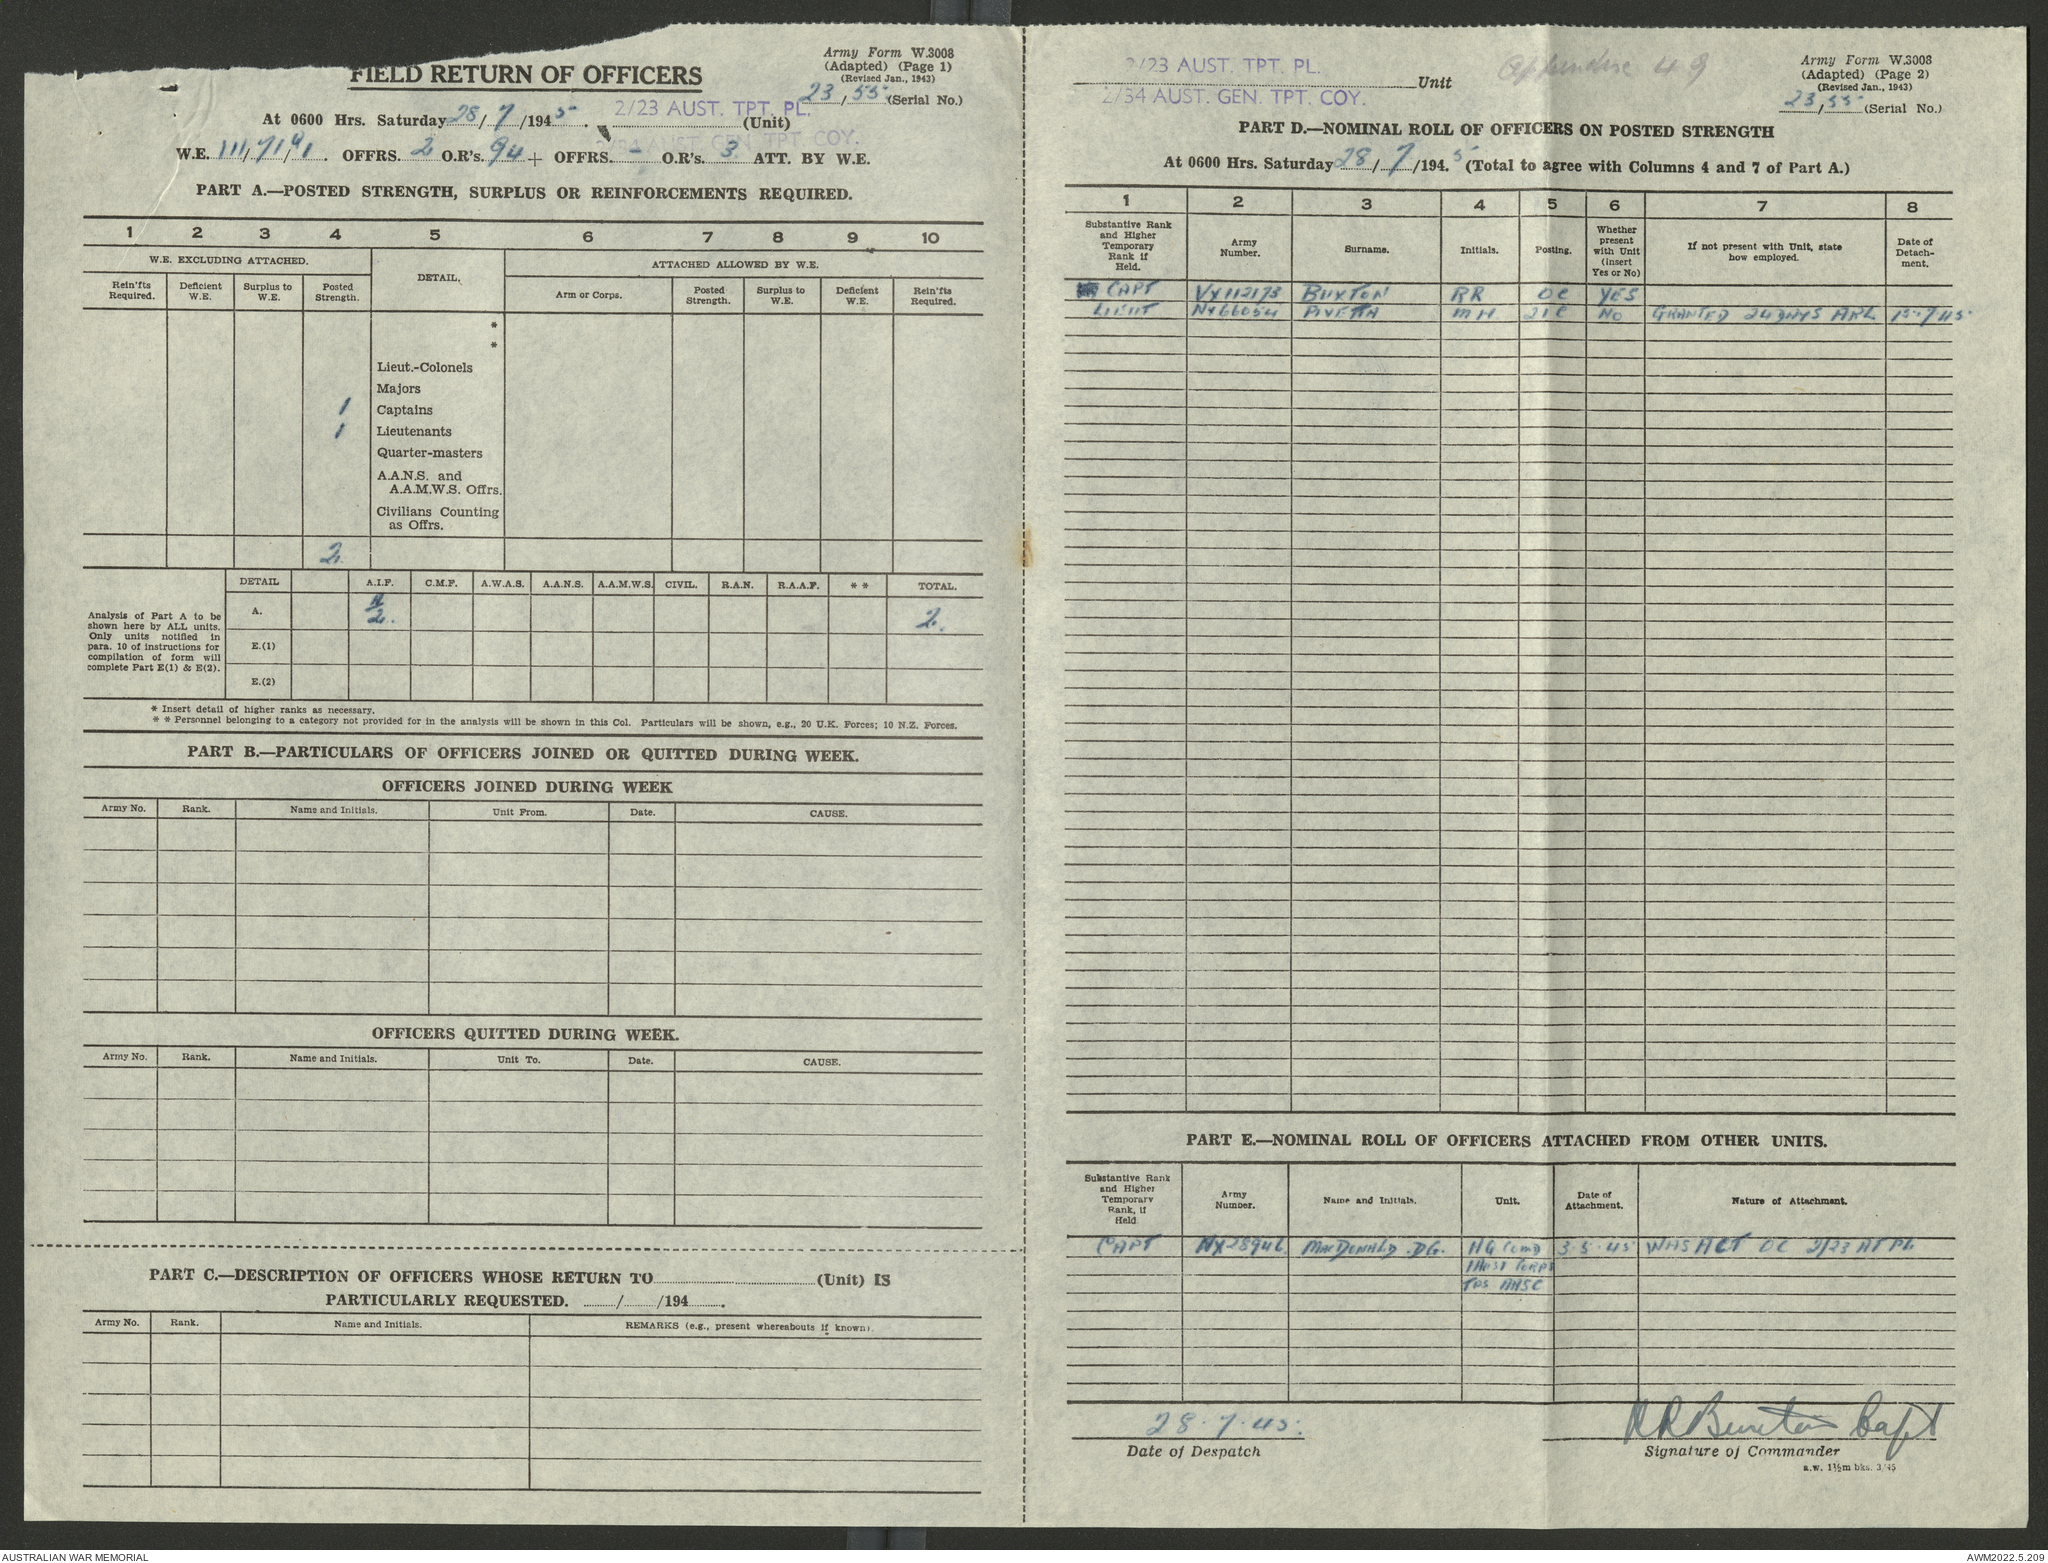 FIELD RETURN OF OFFICERS
Army Form W.3008
(Adapted) (Page 1)
(Revised Jan., 1943)
23/55 (Serial No.)
At 0600 Hrs. Saturday 28/7/1945. 2/23 AUST. TPT. PL. (Unit)
W.E. 111/71/91. OFFRS. 2 O.R's. 94 + OFFRS. - O.R's. 3 ATT. BY W.E.
PART A.—POSTED STRENGTH, SURPLUS OR REINFORCEMENTS REQUIRED.
1 2 3 4 5 6 7 8 9 10
W.E. EXCLUDING ATTACHED. DETAIL. ATTACHED ALLOWED BY W.E.
Rein'fts Required. Deficient W.E. Surplus to W.E. Posted Strength. Arm or Corps. Posted Strength. Surplus to W.E. Deficient W.E. Rein'fts Required.
*
*
Lieut.-Colonels
Majors
1 Captains
1 Lieutenants
Quarter-masters
A.A.N.S. and
A.A.M.W.S. Offrs.
Civilians Counting
as Offrs.
2
DETAIL A.I.F. C.M.F. A.W.A.S. A.A.N.S. A.A.M.W.S. CIVIL. R.A.N. R.A.A.F. * * TOTAL.
Analysis of Part A to be
shown here by ALL units.
Only units notified in
para. 10 of instructions for
compilation of form will
complete Part E(1) & E(2).
A. 2. 2.
E.(1)
E.(2)
* Insert detail of higher ranks as necessary.
* * Personnel belonging to a category not provided for in the analysis will be shown in this Col. Particulars will be shown, e.g., 20 U.K. Forces; 10 N.Z. Forces.
PART B.—PARTICULARS OF OFFICERS JOINED OR QUITTED DURING WEEK.
OFFICERS JOINED DURING WEEK
Army No. Rank. Name and Initials. Unit From. Date. CAUSE.
OFFICERS QUITTED DURING WEEK.
Army No. Rank. Name and Initials. Unit To. Date. CAUSE.
PART C.—DESCRIPTION OF OFFICERS WHOSE RETURN TO (Unit) IS
PARTICULARLY REQUESTED. / /194 .
Army No. Rank. Name and Initials. REMARKS (e.g., present whereabouts if known).
2/23 AUST. TPT. PL.
2/34 AUST. GEN. TPT. COY. Unit
49
Army Form W.3008
(Adapted) (Page 2)
(Revised Jan., 1943)
23/55 (Serial No.)
PART D.—NOMINAL ROLL OF OFFICERS ON POSTED STRENGTH
At 0600 Hrs. Saturday 28/7/1945 (Total to agree with Columns 4 and 7 of Part A.)
1 2 3 4 5 6 7 8
Substantive Rank and Higher Temporary Rank if Held. Army Number. Surname. Initials. Posting. Whether present with Unit (Insert Yes or No) If not present with Unit, state how employed. Date of Detach-ment.
CAPT VX112173 BUXTON RR OC YES
LIEUT NX66054 PIVETTA MH 2IC NO GRANTED 24 DAYS ARL 15-7-45
PART E.—NOMINAL ROLL OF OFFICERS ATTACHED FROM OTHER UNITS.
Substantive Rank and Higher Temporary Rank, if Held Army Number. Name and Initials. Unit. Date of Attachment. Nature of Attachment.
CAPT MacDONALD .DG. HQ Comd 3.5.45 WAS ACT OC 2/23 AT PL
1 AUST CORPS
TPS AASC
28.7.45.
Date of Despatch
RR Buxton Capt
Signature of Commander
a.w. 1½m bks. 3/45
AUSTRALIAN WAR MEMORIAL
AWM2022.5.209